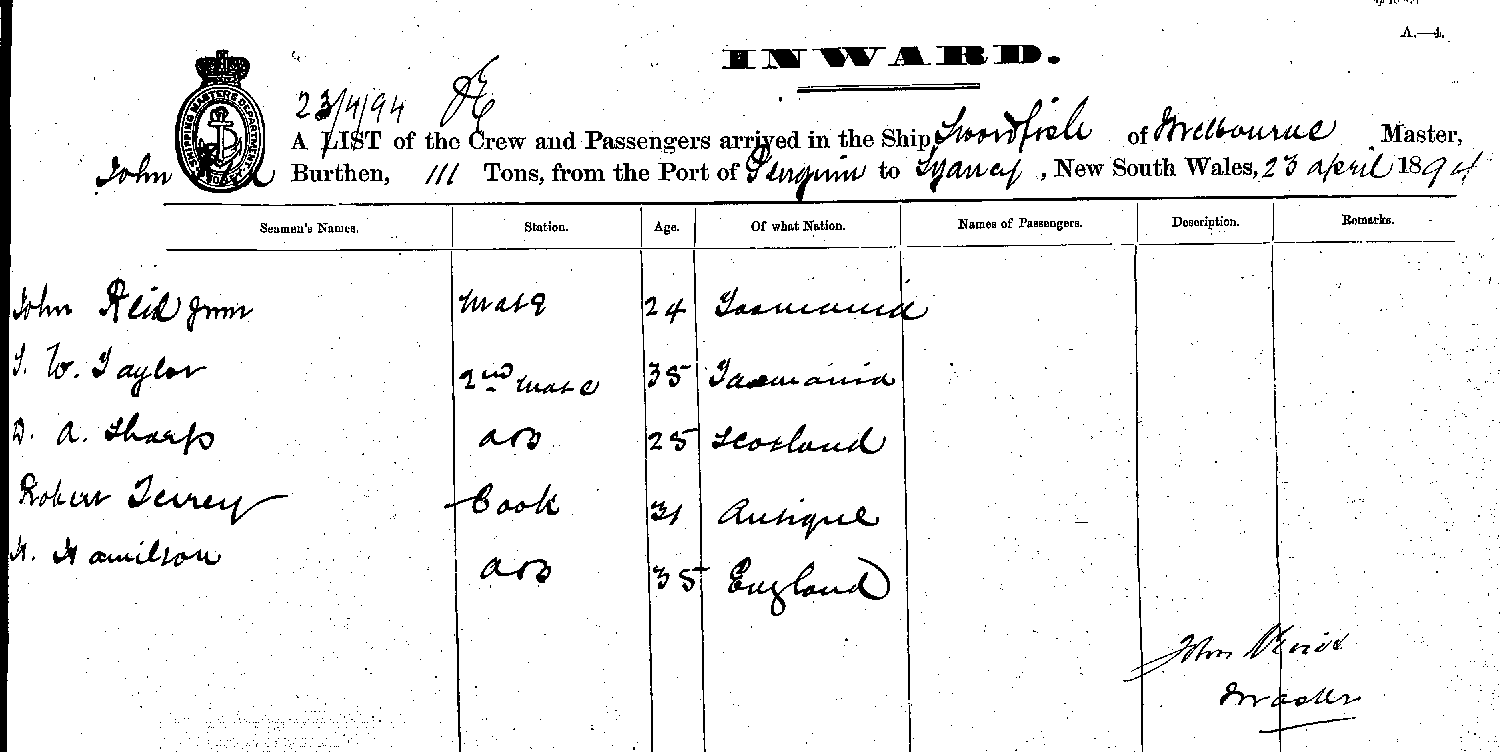 A.—4.
INWARD.
23/4/94
A LIST of the Crew and Passengers arrived in the Ship Swordfish of Melbourne Master,
John Reid Burthen, 111 Tons, from the Port of Penguin to Sydney, New South Wales, 23 April 1894
Seamen's Names. Station. Age. Of what Nation. Names of Passengers. Description. Remarks.
John Reid Junr Mate 24 Tasmania
T. W. Taylor 2nd Mate 35 Tasmania
D. A. Sharp AB 25 Scotland
Robert Terrey Cook 31 Antique
H. Hamilton AB 35 England
John Reid
Master